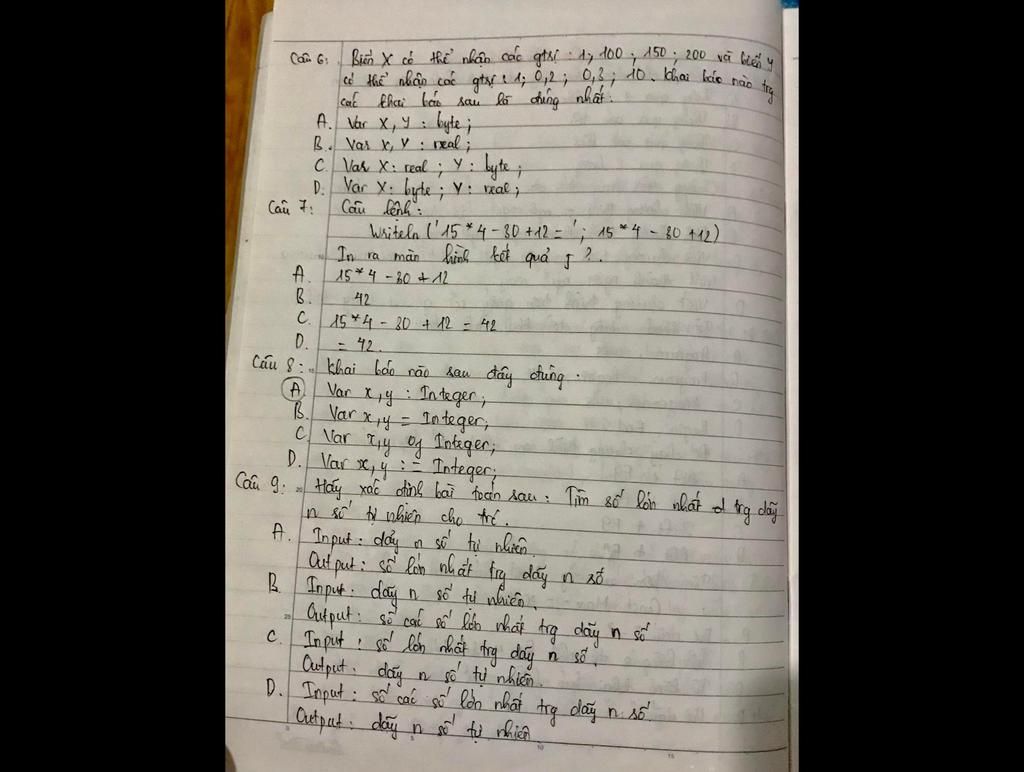 Câu 6: Biến X có thể nhận các gtrị : 1; 100 ; 150 ; 200 và biến y
có thể nhận các gtrị : 1; 0,2 ; 0,3 ; 10. Khai báo nào trg
các khai báo sau là đúng nhất:
A. Var X, Y : byte;
B. Var X, Y : real;
C. Var X: real ; Y : byte ;
D. Var X: byte ; Y : real ;
Câu 7: Câu lệnh:
Writeln ('15 * 4 - 30 + 12 = ' ; 15 * 4 - 30 + 12)
In ra màn hình kết quả j ?.
A. 15 * 4 - 30 + 12
B. 42
C. 15 * 4 - 30 + 12 = 42
D. = 42.
Câu 8: Khai báo nào sau đây đúng.
A Var x,y : Integer;
B. Var x,y = Integer;
C. Var x,y of Integer;
D. Var x, y := Integer;
Câu 9: Hãy xác định bài toán sau: Tìm số lớn nhất trg dãy
n số tự nhiên cho trc.
A. Input : dãy n số tự nhiên.
Output : số lớn nhất trg dãy n số
B. Input : dãy n số tự nhiên.
Output : số các số lớn nhất trg dãy n số
C. Input : số lớn nhất trg dãy n số.
Output : dãy n số tự nhiên.
D. Input : số các số lớn nhất trg dãy n số.
Output : dãy n số tự nhiên